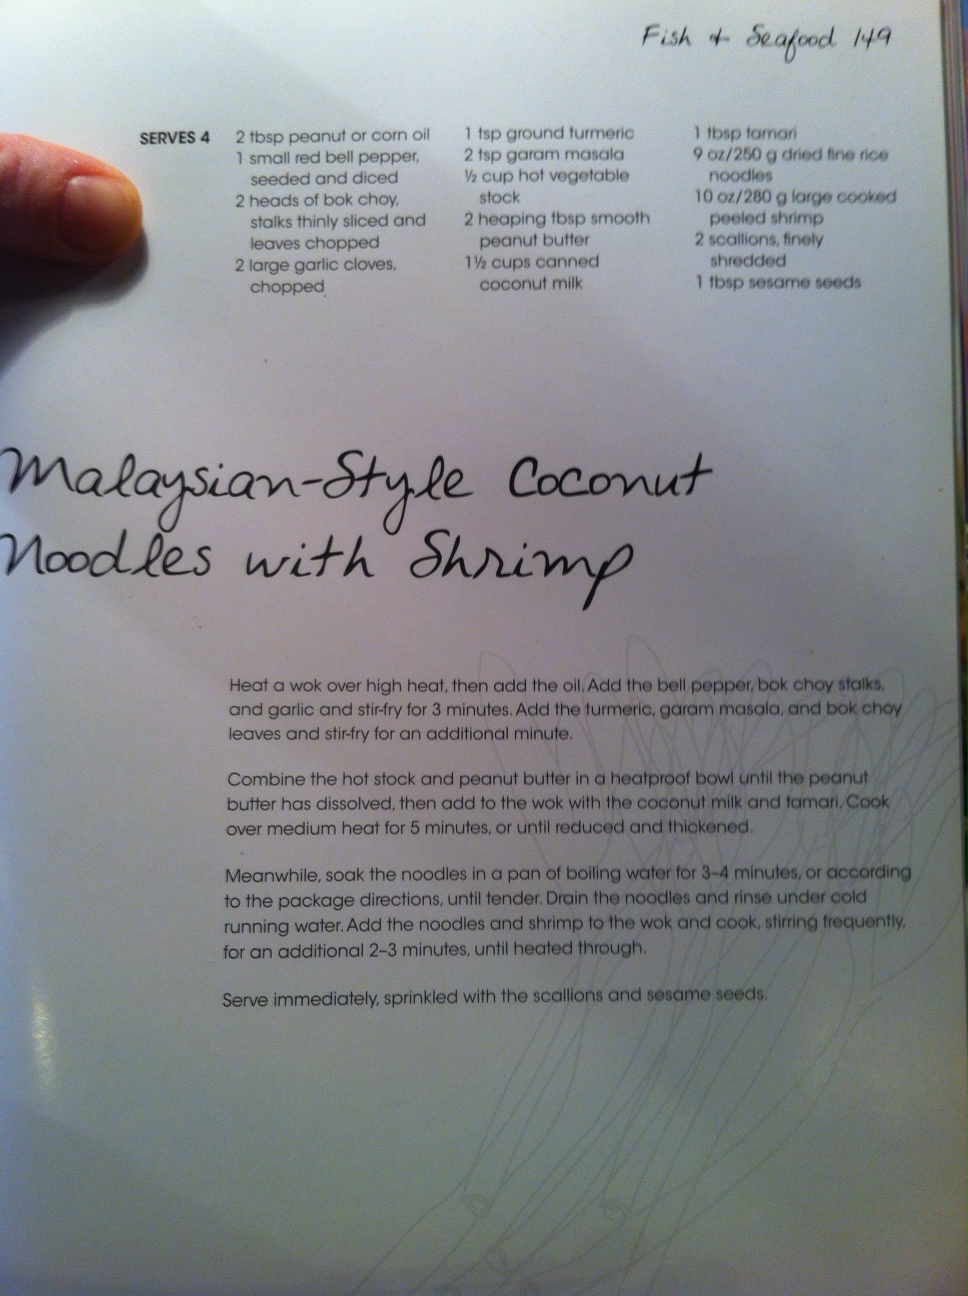 Fish & Seafood 149
SERVES 4
2 tbsp peanut or corn oil
1 small red bell pepper,
seeded and diced
2 heads of bok choy,
stalks thinly sliced and
leaves chopped
2 large garlic cloves,
chopped
1 tsp ground turmeric
2 tsp garam masala
½ cup hot vegetable
stock
2 heaping tbsp smooth
peanut butter
1½ cups canned
coconut milk
1 tbsp tamari
9 oz/250 g dried fine rice
noodles
10 oz/280 g large cooked
peeled shrimp
2 scallions, finely
shredded
1 tbsp sesame seeds
Malaysian-Style Coconut
Noodles with Shrimp
Heat a wok over high heat, then add the oil. Add the bell pepper, bok choy stalks,
and garlic and stir-fry for 3 minutes. Add the turmeric, garam masala, and bok choy
leaves and stir-fry for an additional minute.
Combine the hot stock and peanut butter in a heatproof bowl until the peanut
butter has dissolved, then add to the wok with the coconut milk and tamari. Cook
over medium heat for 5 minutes, or until reduced and thickened.
Meanwhile, soak the noodles in a pan of boiling water for 3–4 minutes, or according
to the package directions, until tender. Drain the noodles and rinse under cold
running water. Add the noodles and shrimp to the wok and cook, stirring frequently,
for an additional 2–3 minutes, until heated through.
Serve immediately, sprinkled with the scallions and sesame seeds.